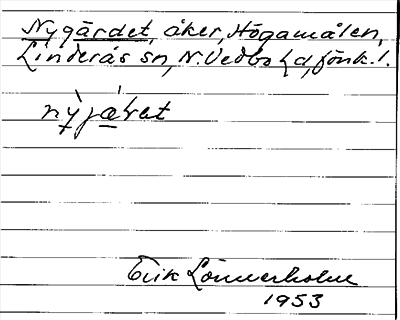 Nygärdet, åker, Högamålen,
Linderås sn, N. Vedbo hd, Jönk. l.
Erik Lönnerholm
1953